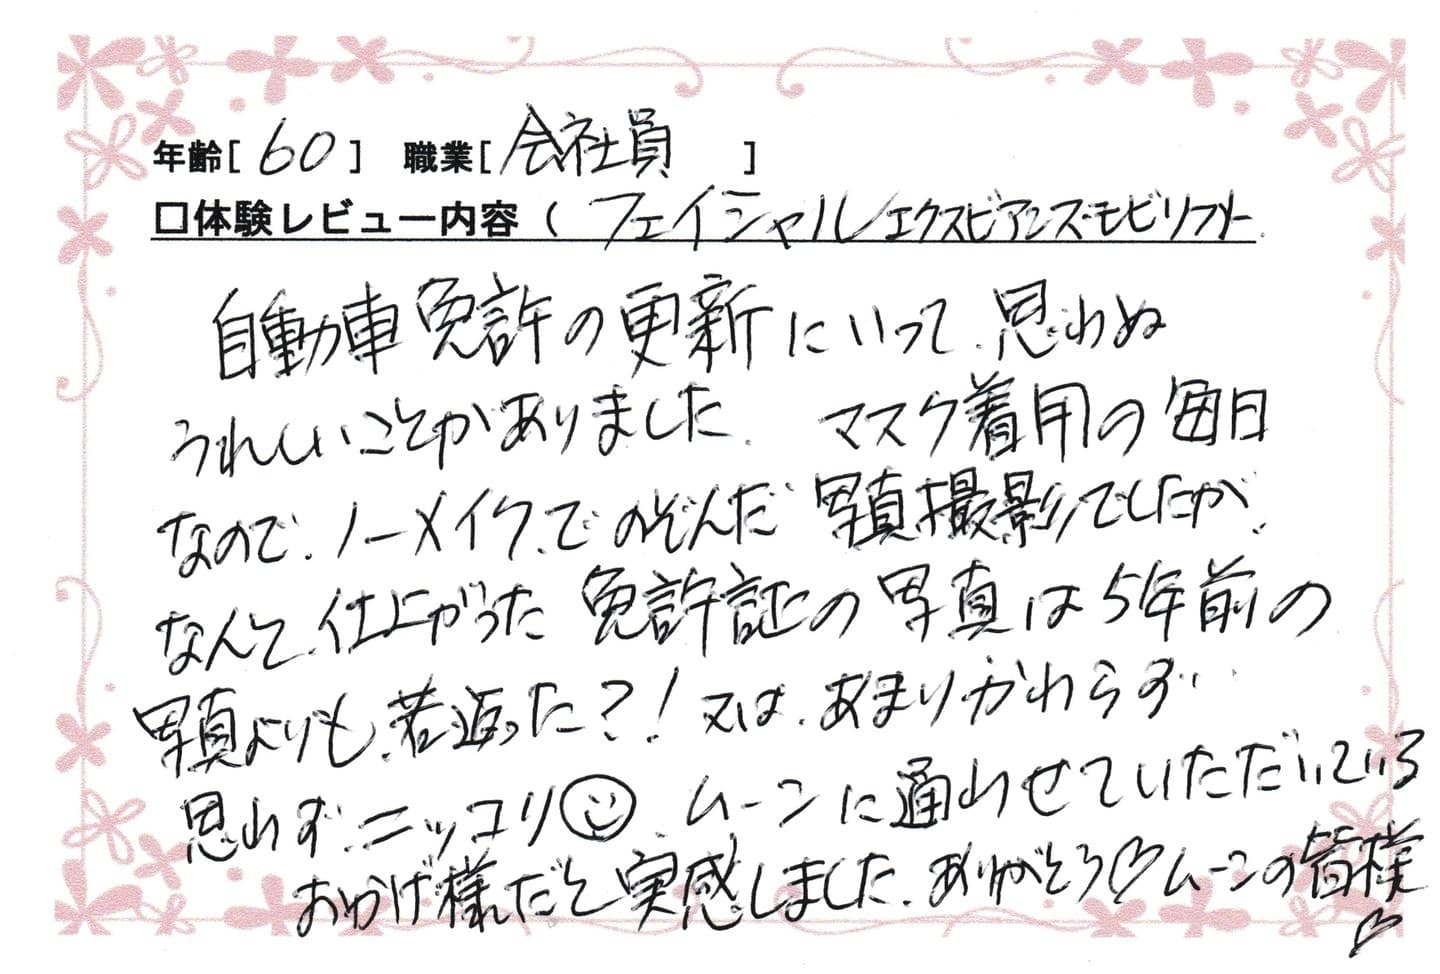 年齢[ 60 ] 職業[ 会社員 ]
□体験レビュー内容 ( フェイシャルエクスビアンス・モビリフト
自動車免許の更新にいって、思わぬ
うれしいことがありました。 マスク着用の毎日
なので、ノーメイク、でのぞんだ 写真撮影でしたが、
なんと、仕上がった 免許証の写真は5年前の
写真よりも、若返った?! 又は、あまりかわらず…
思わず、ニッコリ☺. ムーンに通わせていただいている
おかげ様だと実感しました。ありがとう♡ムーンの皆様
♡